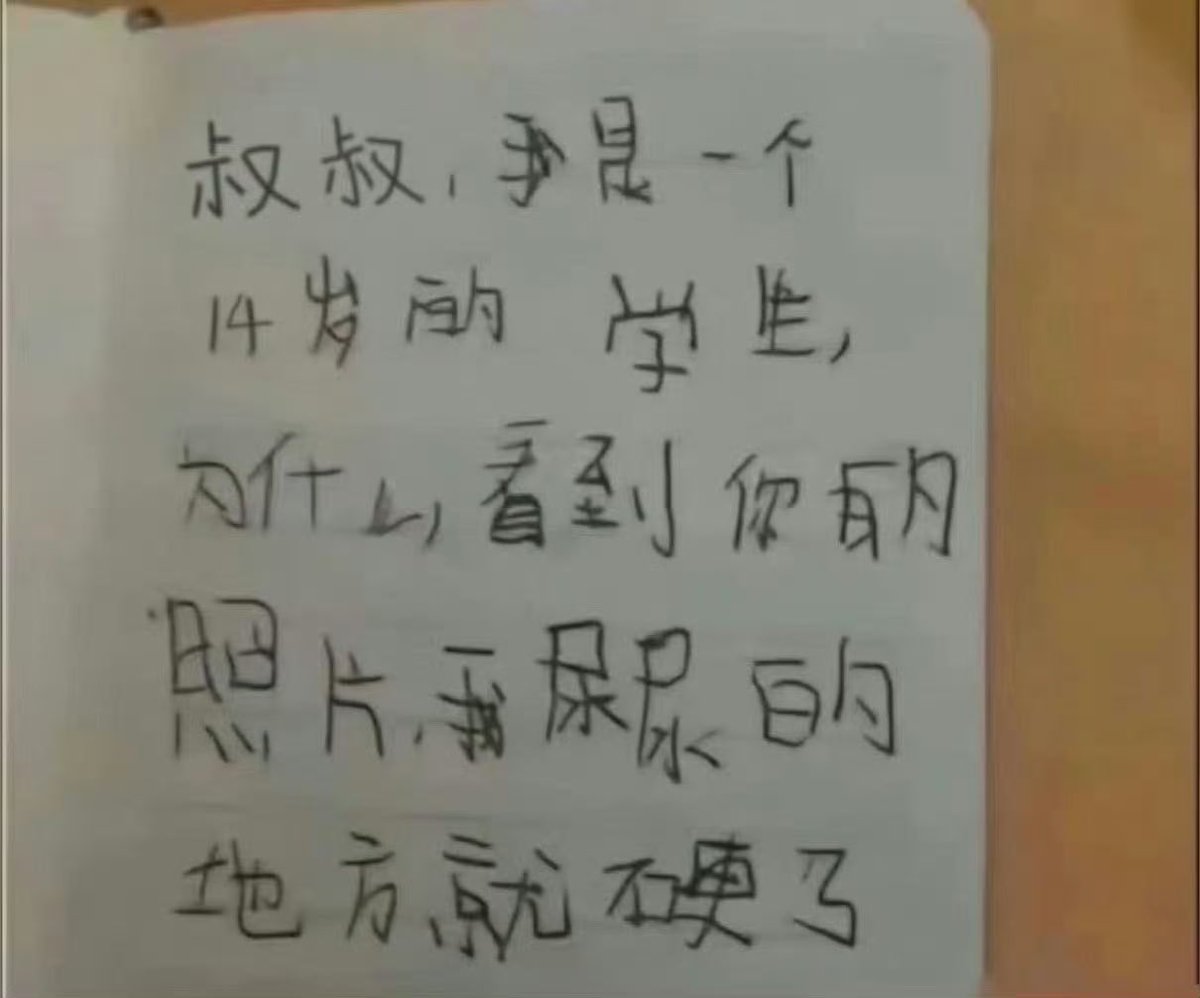 叔叔，我是一个
14岁的学生，
为什么，看到你的
照片，我尿尿的
地方就硬了